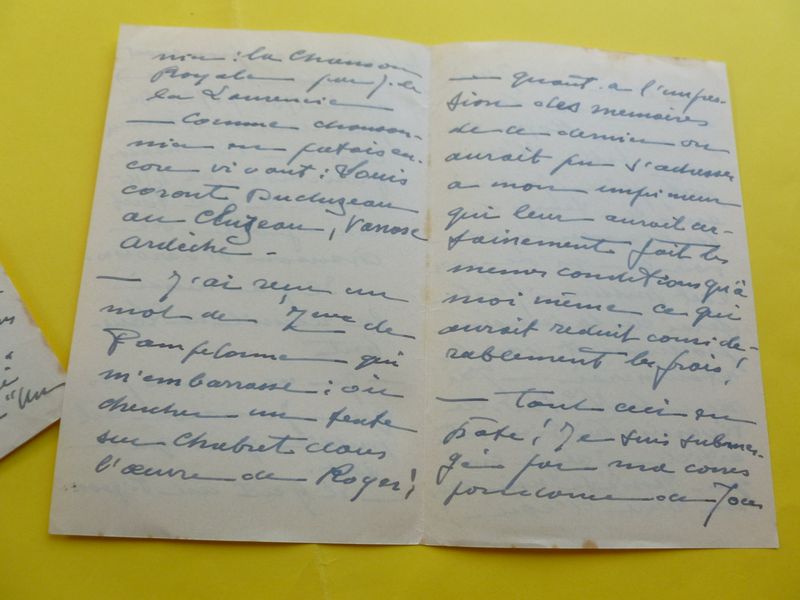 nier : la Chanson
Royale par J. de
la Laurencie
— Comme chanson-
nier en patois en-
core vivant : Louis
Coront Ducluzeau
au Cluzeau, Vanosc
Ardèche -
— J'ai reçu un
mot de de
Pampelonne qui
m'embarrasse : où
chercher un texte
sur Chabret dans
l'œuvre de Roger !
— quant a l'impres-
sion des memoires
de ce dernier on
aurait pu s'adresser
a mon imprimeur
qui leur aurait cer-
tainement fait les
memes conditions qu'à
moi même ce qui
aurait reduit conside-
rablement les frais !
— tout ceci en
hate ! Je suis submer-
gée par ma corres
pondance de